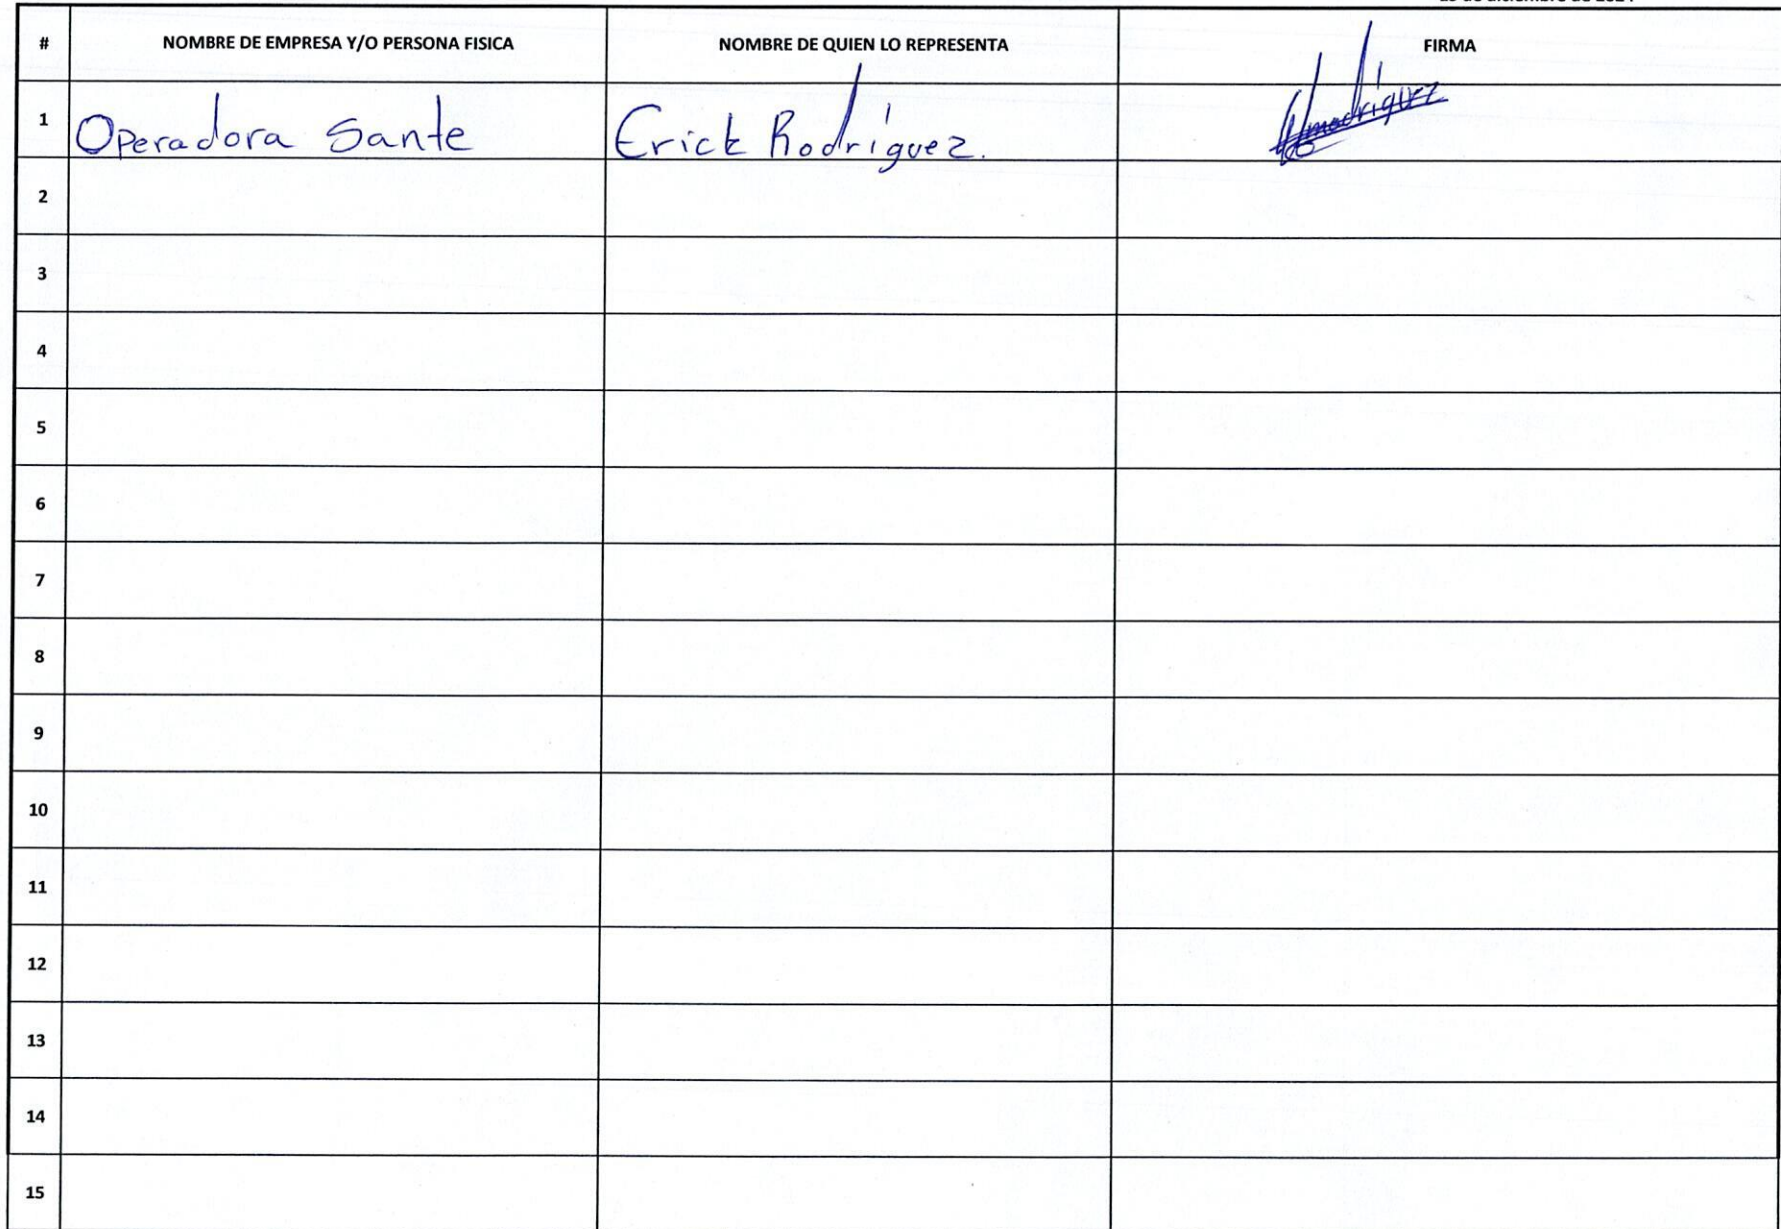 # NOMBRE DE EMPRESA Y/O PERSONA FISICA NOMBRE DE QUIEN LO REPRESENTA FIRMA
1 Operadora Sante Erick Rodríguez.
2
3
4
5
6
7
8
9
10
11
12
13
14
15